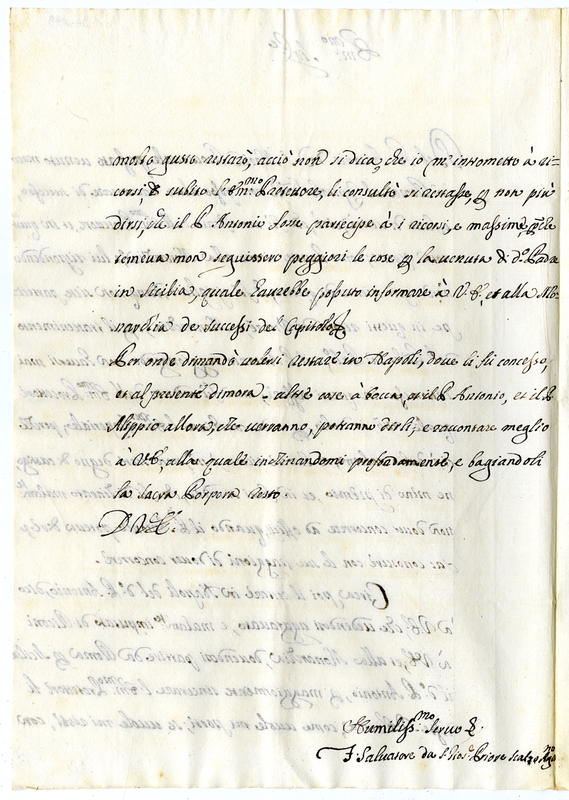 molto gusto restarò, acciò non si dica, che io m'intrometto à ri-
corsi, subito l'Em.mo Protettore, li consultò si restasse, non può
dirsi, che il P. Antonio fosse partecipe à i ricorsi, e massime, che
temeva non seguissero peggiori le cose la venuta di d.o Padre
in Sicilia, quale haurebbe posputo informare à V. E. et alla Mo-
narchia de successi del Capitolo.
Per onde dimandò volersi restare in Napoli, dove li fù concesso,
et al presente dimora. altre cose à bocca, et il P. Antonio, et il P.
Alippio allora, che verranno, potranno dirli, e raccontare meglio
à V. E. alla quale inclinandomi profondamente, e bagiandoli
la Sacra Porpora resto
D. V. E.
Humiliss.mo Servo
F. Salvatore da S. Gios. Priore Scalzo Ago.no